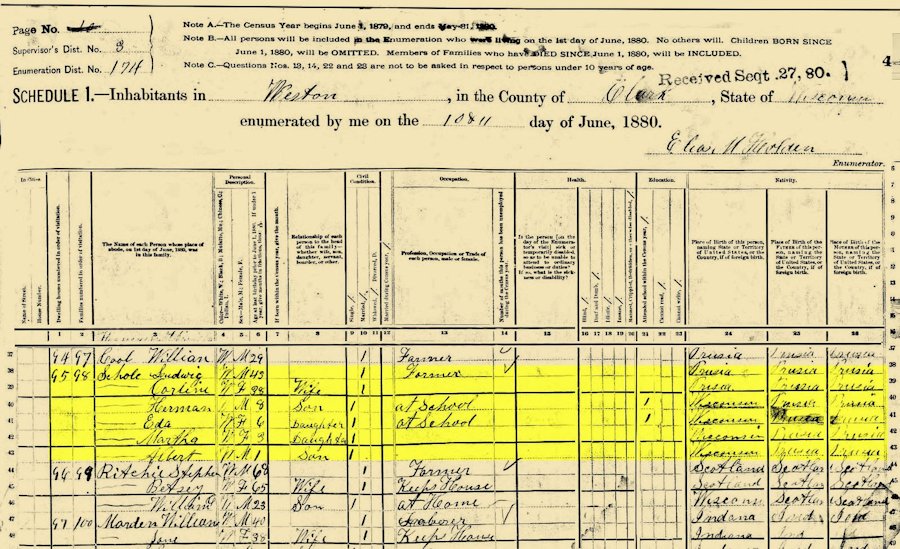 Page No. 10
Supervisor's Dist. No. 3
Enumeration Dist. No. 174
Note A.—The Census Year begins June 1, 1879, and ends May 31, 1880.
Note B.—All persons will be included in the Enumeration who were living on the 1st day of June, 1880. No others will. Children BORN SINCE
June 1, 1880, will be OMITTED. Members of Families who have DIED SINCE June 1, 1880, will be INCLUDED.
Note C.—Questions Nos. 13, 14, 22 and 23 are not to be asked in respect to persons under 10 years of age.
Received Sept. 27, 80.
4
SCHEDULE 1.—Inhabitants in Weston, in the County of Clark, State of Wisconsin
enumerated by me on the 10th day of June, 1880.
Elias N Holden
Enumerator.
In Cities.
Personal Description.
Civil Condition.
Occupation.
Health.
Education.
Nativity.
Name of Street.
House Number.
Dwelling houses numbered in order of visitation.
Families numbered in order of visitation.
The Name of each Person whose place of abode, on 1st day of June, 1880, was in this family.
Color—White, W; Black, B; Mulatto, Mu; Chinese, C; Indian, I.
Sex—Male, M; Female, F.
If born within the Census year, give the month.
Relationship of each person to the head of this family—whether wife, son, daughter, servant, boarder, or other.
Single,
Married,
Widowed, Divorced, D.
Married during Census year.
Profession, Occupation or Trade of each person, male or female.
Number of months this person has been unemployed during the Census year.
Is the person [on the day of the Enumerator's visit] sick or temporarily disabled, so as to be unable to attend to ordinary business or duties? If so, what is the sickness or disability?
Blind,
Deaf and Dumb,
Idiotic,
Insane,
Attended school within the Census year,
Cannot read,
Cannot write,
Place of Birth of this person, naming State or Territory of United States, or the Country, if of foreign birth.
Place of Birth of the Father of this person, naming the State or Territory of United States, or the Country, if of foreign birth.
Place of Birth of the Mother of this person, naming the State or Territory of United States, or the Country, if of foreign birth.
1 2 3 4 5 6 7 8 9 10 11 12 13 14 15 16 17 18 19 20 21 22 23 24 25 26
37 94 97 Cool William W M 29 1 Farmer Prusia Prusia Prusia
38 95 98 Scholc Ludwig W M 43 1 Farmer Prusia Prusia Prusia
39 Corline W F 38 Wife 1 Prusia Prusia Prusia
40 Herman W M 8 Son 1 at School 1 Wisconsin Prusia Prusia
41 Eda W F 6 Daughter 1 at School 1 Wisconsin Prusia Prusia
42 Martha W F 3 Daughter 1 Wisconsin Prusia Prusia
43 Albert W M 1 Son 1 Wisconsin Prusia Prusia
44 96 99 Ritchie Stephen W M 68 1 Farmer Scotland Scotland Scotland
45 Betsey W F 65 Wife 1 Keeps House Scotland Scotland Scotland
46 William W M 23 Son 1 at Home Wisconsin Scotland Scotland
47 97 100 Marden William W M 40 1 Laborer Indiana Ind Ind
48 Jane W F 38 Wife 1 Keeps House Indiana Ind Ind